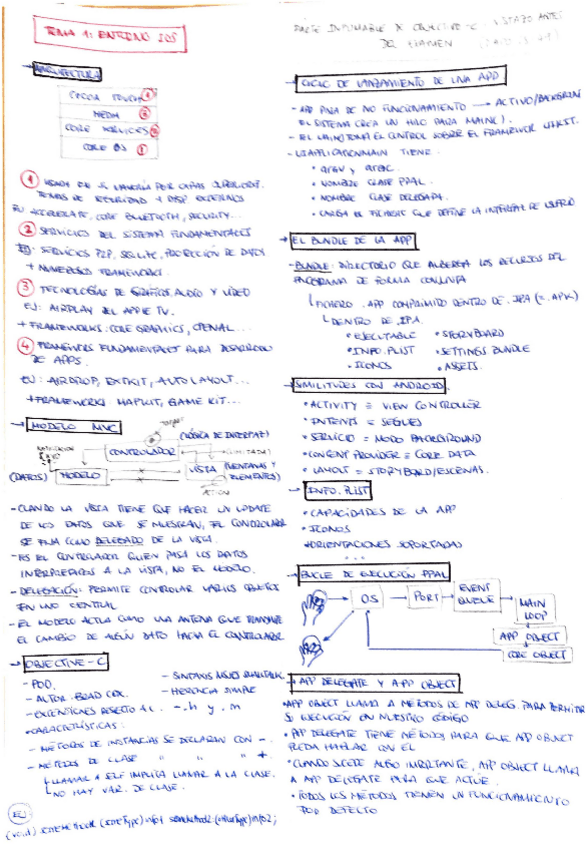 TEMA 1: ENTORNO IOS
→ ARQUITECTURA
COCOA TOUCH 4
MEDIA 3
CORE SERVICES 2
CORE OS 1
1
TEMAS DE SEGURIDAD + DISP EXTERNOS
EJ: ACCELERATE, CORE BLUETOOTH, SECURITY...
2 SERVICIOS DEL SISTEMA FUNDAMENTALES
EJ: SERVICIOS P2P, SQLITE, PROTECCIÓN DE DATOS
+ NUMEROSOS FRAMEWORKS.
3 TECNOLOGÍAS DE GRÁFICOS, AUDIO Y VÍDEO
EJ: AIRPLAY DEL APPLE TV.
+ FRAMEWORKS: CORE GRAPHICS, OPENAL...
4 FRAMEWORKS FUNDAMENTALES PARA DESARROLLO
DE APPS.
EJ: AIRDROP, EXTKIT, AUTO LAYOUT...
+ FRAMEWORKS MAPKIT, GAME KIT...
→ MODELO MVC
TARGET
(LÓGICA DE INTERFAZ)
CONTROLADOR
(DATOS) MODELO
VISTA (VENTANAS Y
ELEMENTOS)
ACTION
- CUANDO LA VISTA TIENE QUE HACER UN UPDATE
DE LOS DATOS QUE SE MUESTRAN, EL CONTROLADOR
SE FIJA COMO DELEGADO DE LA VISTA.
- ES EL CONTROLADOR QUIEN PASA LOS DATOS
INTERPRETADOS A LA VISTA, NO EL MODELO.
- DELEGACIÓN: PERMITE CONTROLAR VARIOS OBJETOS
EN UNO CENTRAL
- EL MODELO ACTUA COMO UNA ANTENA QUE TRANSMITE
EL CAMBIO DE ALGÚN DATO HACIA EL CONTROLADOR
→ OBJECTIVE-C
- POO.
- SINTAXIS SMALLTALK.
- AUTOR: BRAD COX.
- HERENCIA SIMPLE
- EXTENSIONES RESPECTO A C. → .h y .m
• CARACTERÍSTICAS:
- MÉTODOS DE INSTANCIAS SE DECLARAN CON -.
- MÉTODOS DE CLASE " " " +
LLAMAR A SELF IMPLICA LLAMAR A LA CLASE.
NO HAY VAR. DE CLASE.
EJ:
PARTE DE OBJECTIVE-C. VISTAZO ANTES
DEL EXAMEN
→ CICLO DE LANZAMIENTO DE UNA APP
- APP PASA DE NO FUNCIONAMIENTO → ACTIVO/BACKGROUND
EL SISTEMA CREA UN HILO PARA MAIN( ).
- EL MAIN( ) TOMA EL CONTROL SOBRE EL FRAMEWORK UIKIT.
- UIAPPLICATIONMAIN TIENE:
• argv y argc.
• NOMBRE CLASE PPAL.
• NOMBRE CLASE DELEGADA.
• CARGA EL FICHERO QUE DEFINE LA INTERFAZ DE USUARIO
→ EL BUNDLE DE LA APP
- BUNDLE: DIRECTORIO QUE ALBERGA LOS RECURSOS DEL
PROGRAMA DE FORMA CONJUNTA
FICHERO .APP COMPRIMIDO DENTRO DE .IPA (= .APK)
DENTRO DE .IPA.
• EJECUTABLE • STORYBOARD
• INFO.PLIST • SETTINGS BUNDLE
• ICONOS • ASSETS.
SIMILITUDES CON ANDROID.
• ACTIVITY = VIEW CONTROLLER
• INTENTS = SEGUES
• SERVICIO = MODO BACKGROUND
• CONTENT PROVIDER = CORE DATA
• LAYOUT = STORYBOARD/ESCENAS.
→ INFO.PLIST
• CAPACIDADES DE LA APP
• ICONOS
• ORIENTACIONES SOPORTADAS
...
→ BUCLE DE EJECUCIÓN PPAL
OS
PORT
EVENT
QUEUE
MAIN
LOOP
APP OBJECT
CORE OBJECT
→ APP DELEGATE Y APP OBJECT
• APP OBJECT LLAMA A MÉTODOS DE APP DELEG. PARA PERMITIR
SU EJECUCIÓN EN NUESTRO CÓDIGO
• APP DELEGATE TIENE MÉTODOS PARA QUE APP OBJECT
PUEDA HABLAR CON ÉL
• CUANDO SUCEDE ALGO IMPORTANTE, APP OBJECT LLAMA
A APP DELEGATE PARA QUE ACTÚE.
• TODOS LOS MÉTODOS TIENEN UN FUNCIONAMIENTO
POR DEFECTO